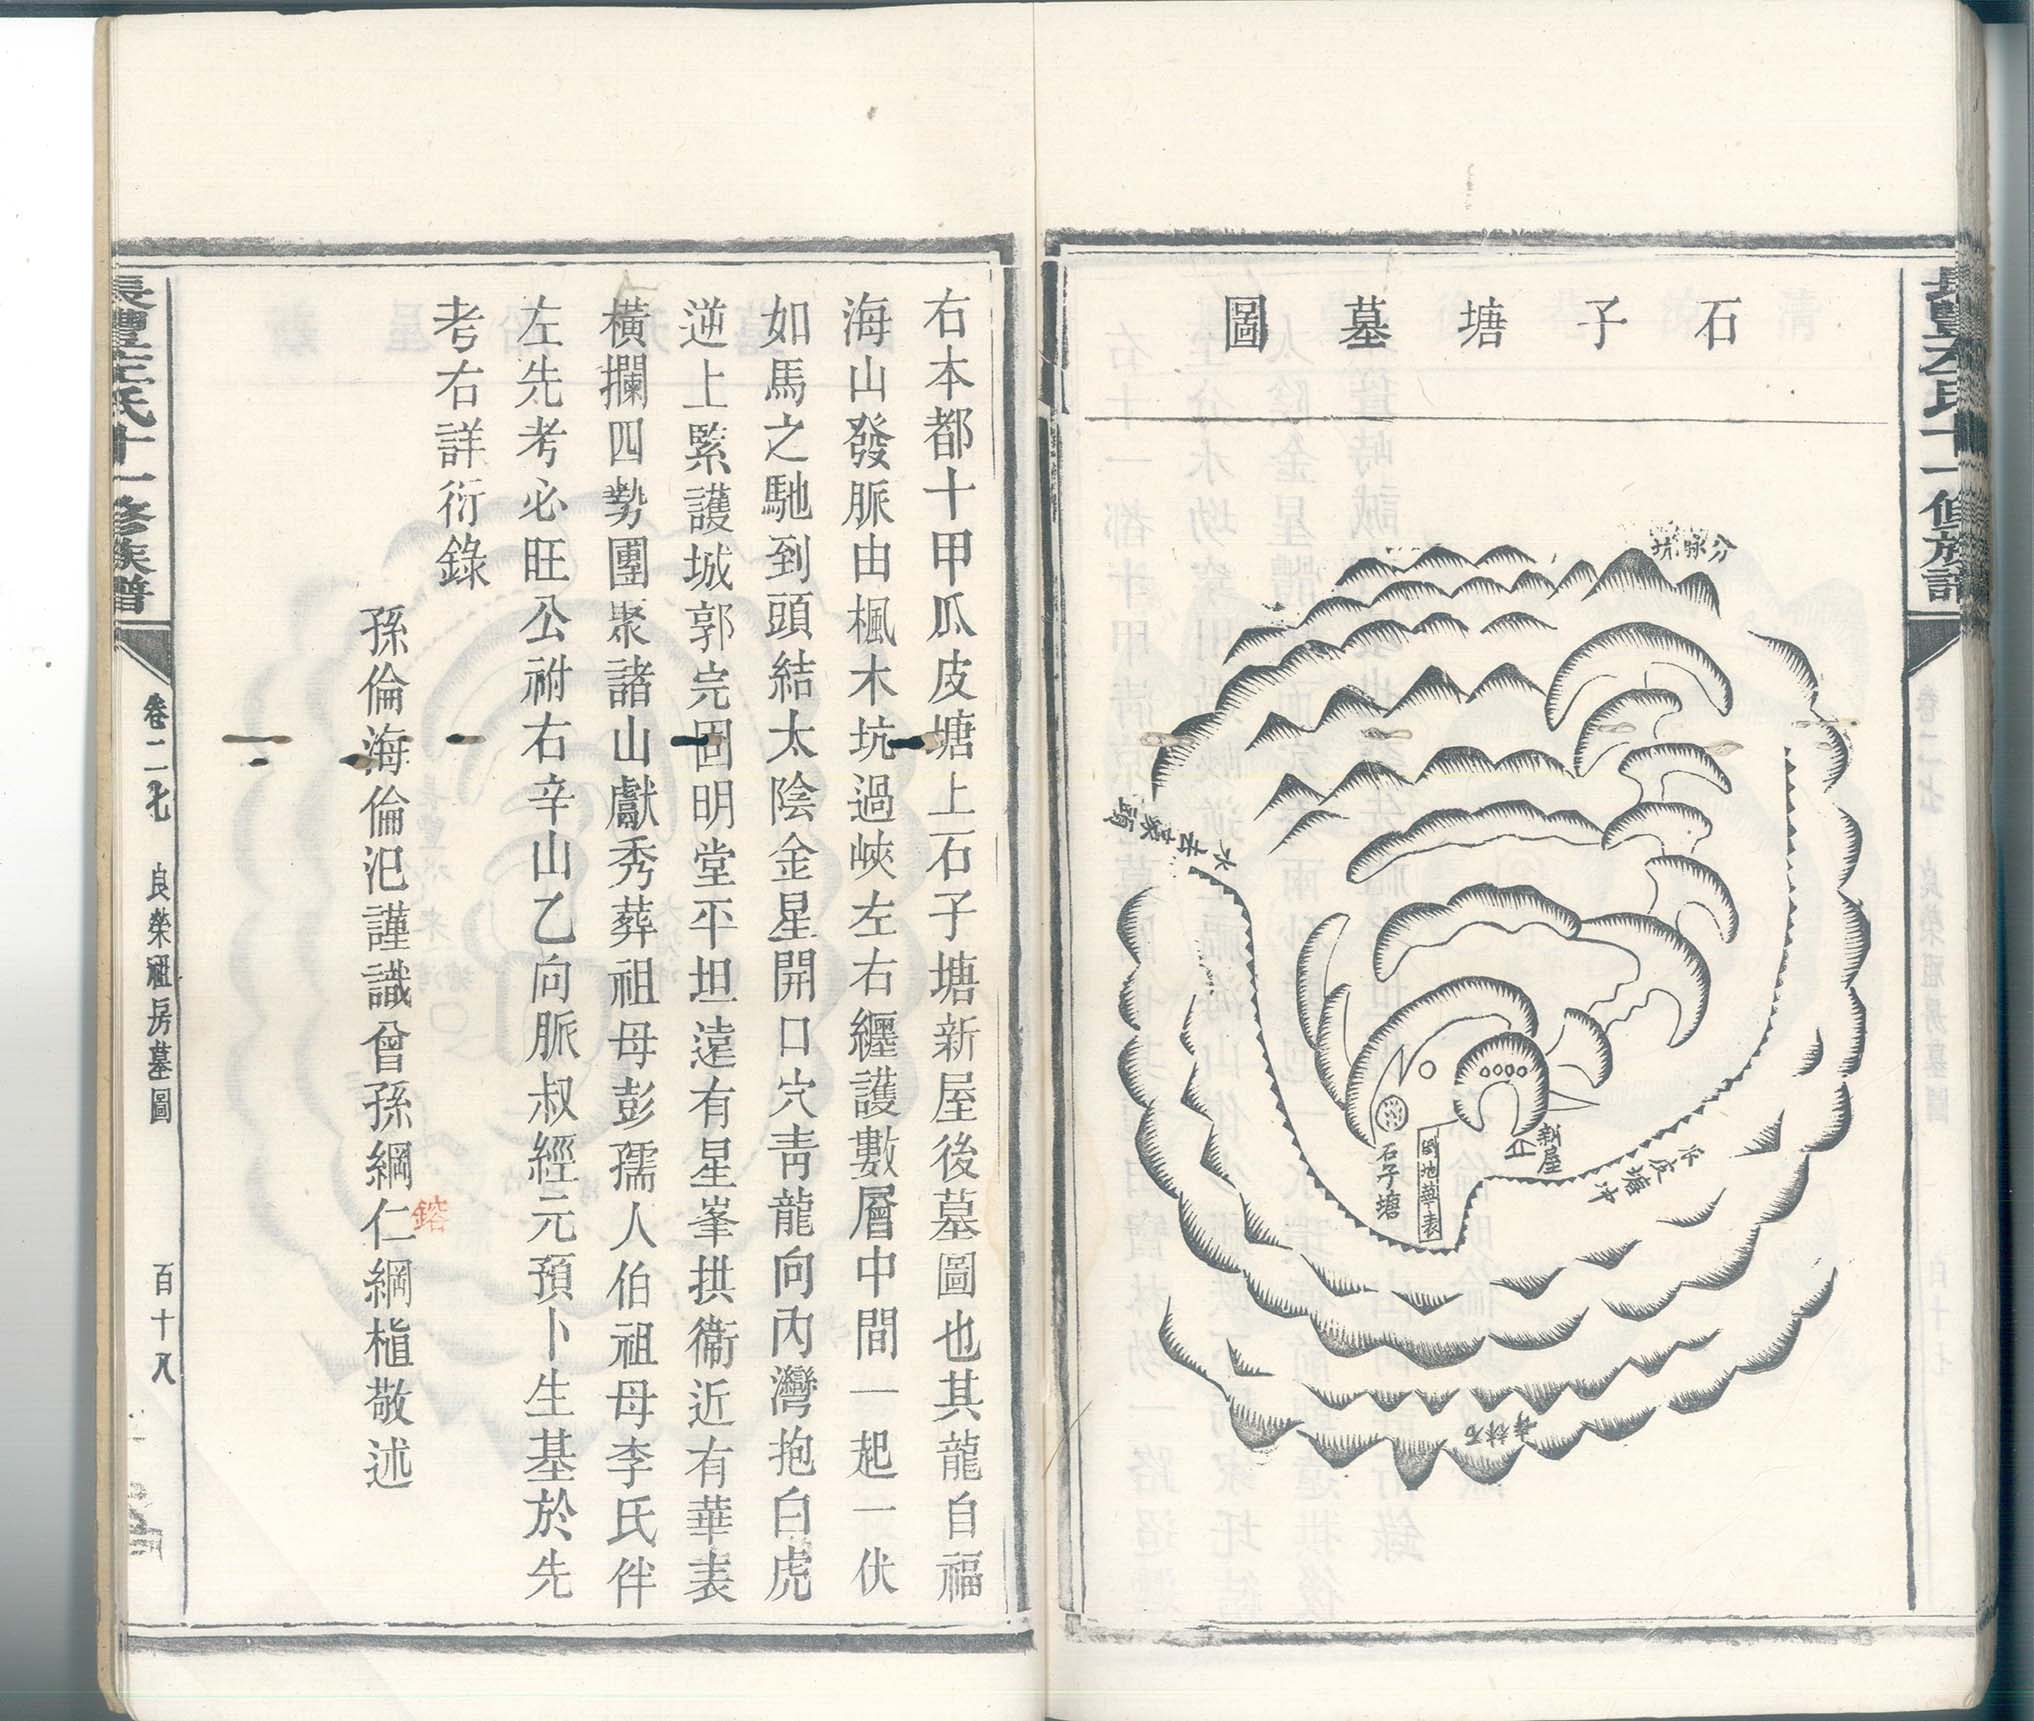 石子塘墓圖
分脉坑
水去菜頭
新屋
石子塘
倒地華表
瓜皮塘冲
石林寺
右本都十甲瓜皮塘上石子塘新屋後墓圖也其龍自福
海山發脈由楓木坑過峽左右纏護數層中間一起一伏
如馬之馳到頭結太陰金星開口穴靑龍向內灣抱白虎
逆上緊護城郭完固明堂平坦遠有星峯拱衞近有華表
橫攔四勢團聚諸山獻秀葬祖母彭孺人伯祖母李氏伴
左先考必旺公祔右辛山乙向脈叔經元預卜生基於先
考右詳衍錄
孫倫海倫汜謹識曾孫綱仁綱植敬述
鎔
氏十一修族譜
卷二七
良榮祖房墓圖
百十八